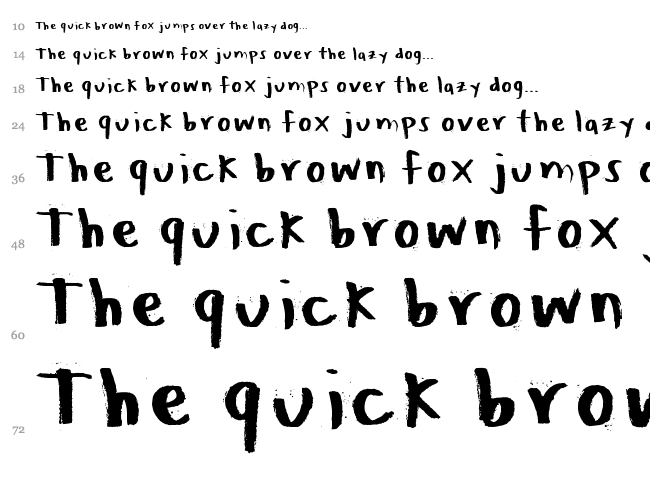 10 The quick brown fox jumps over the lazy dog...
14 The quick brown fox jumps over the lazy dog...
18 The quick brown fox jumps over the lazy dog...
24 The quick brown fox jumps over the lazy
36 The quick brown fox jumps
48 The quick brown fox
60 The quick brown
72 The quick brow